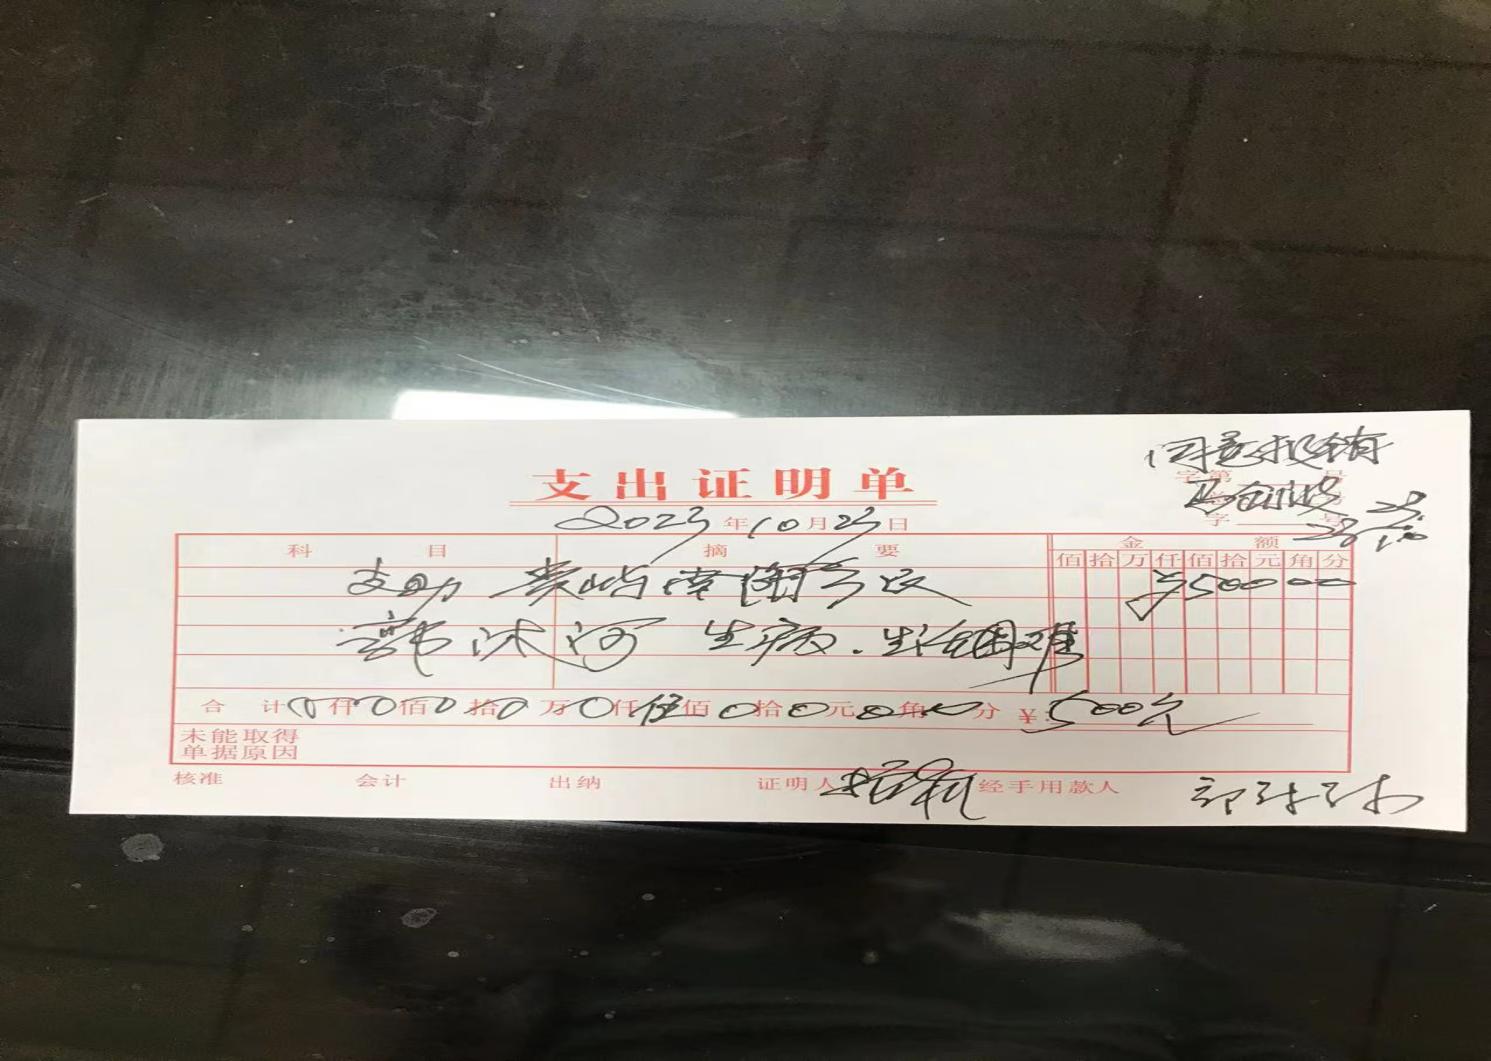 同意报销
字第 号
字 号
23
23/10
支出证明单
2023年10月23日
科 目 摘 要 金 额
佰拾万仟佰拾元角分
支助 黄屿南陶乡民 ¥50000
生病.生活困难
合 计 0仟0佰0拾0万0仟伍佰0拾0元0角0分 ¥:500元
未能取得
单据原因
核准 会计 出纳 证明人 经手用款人